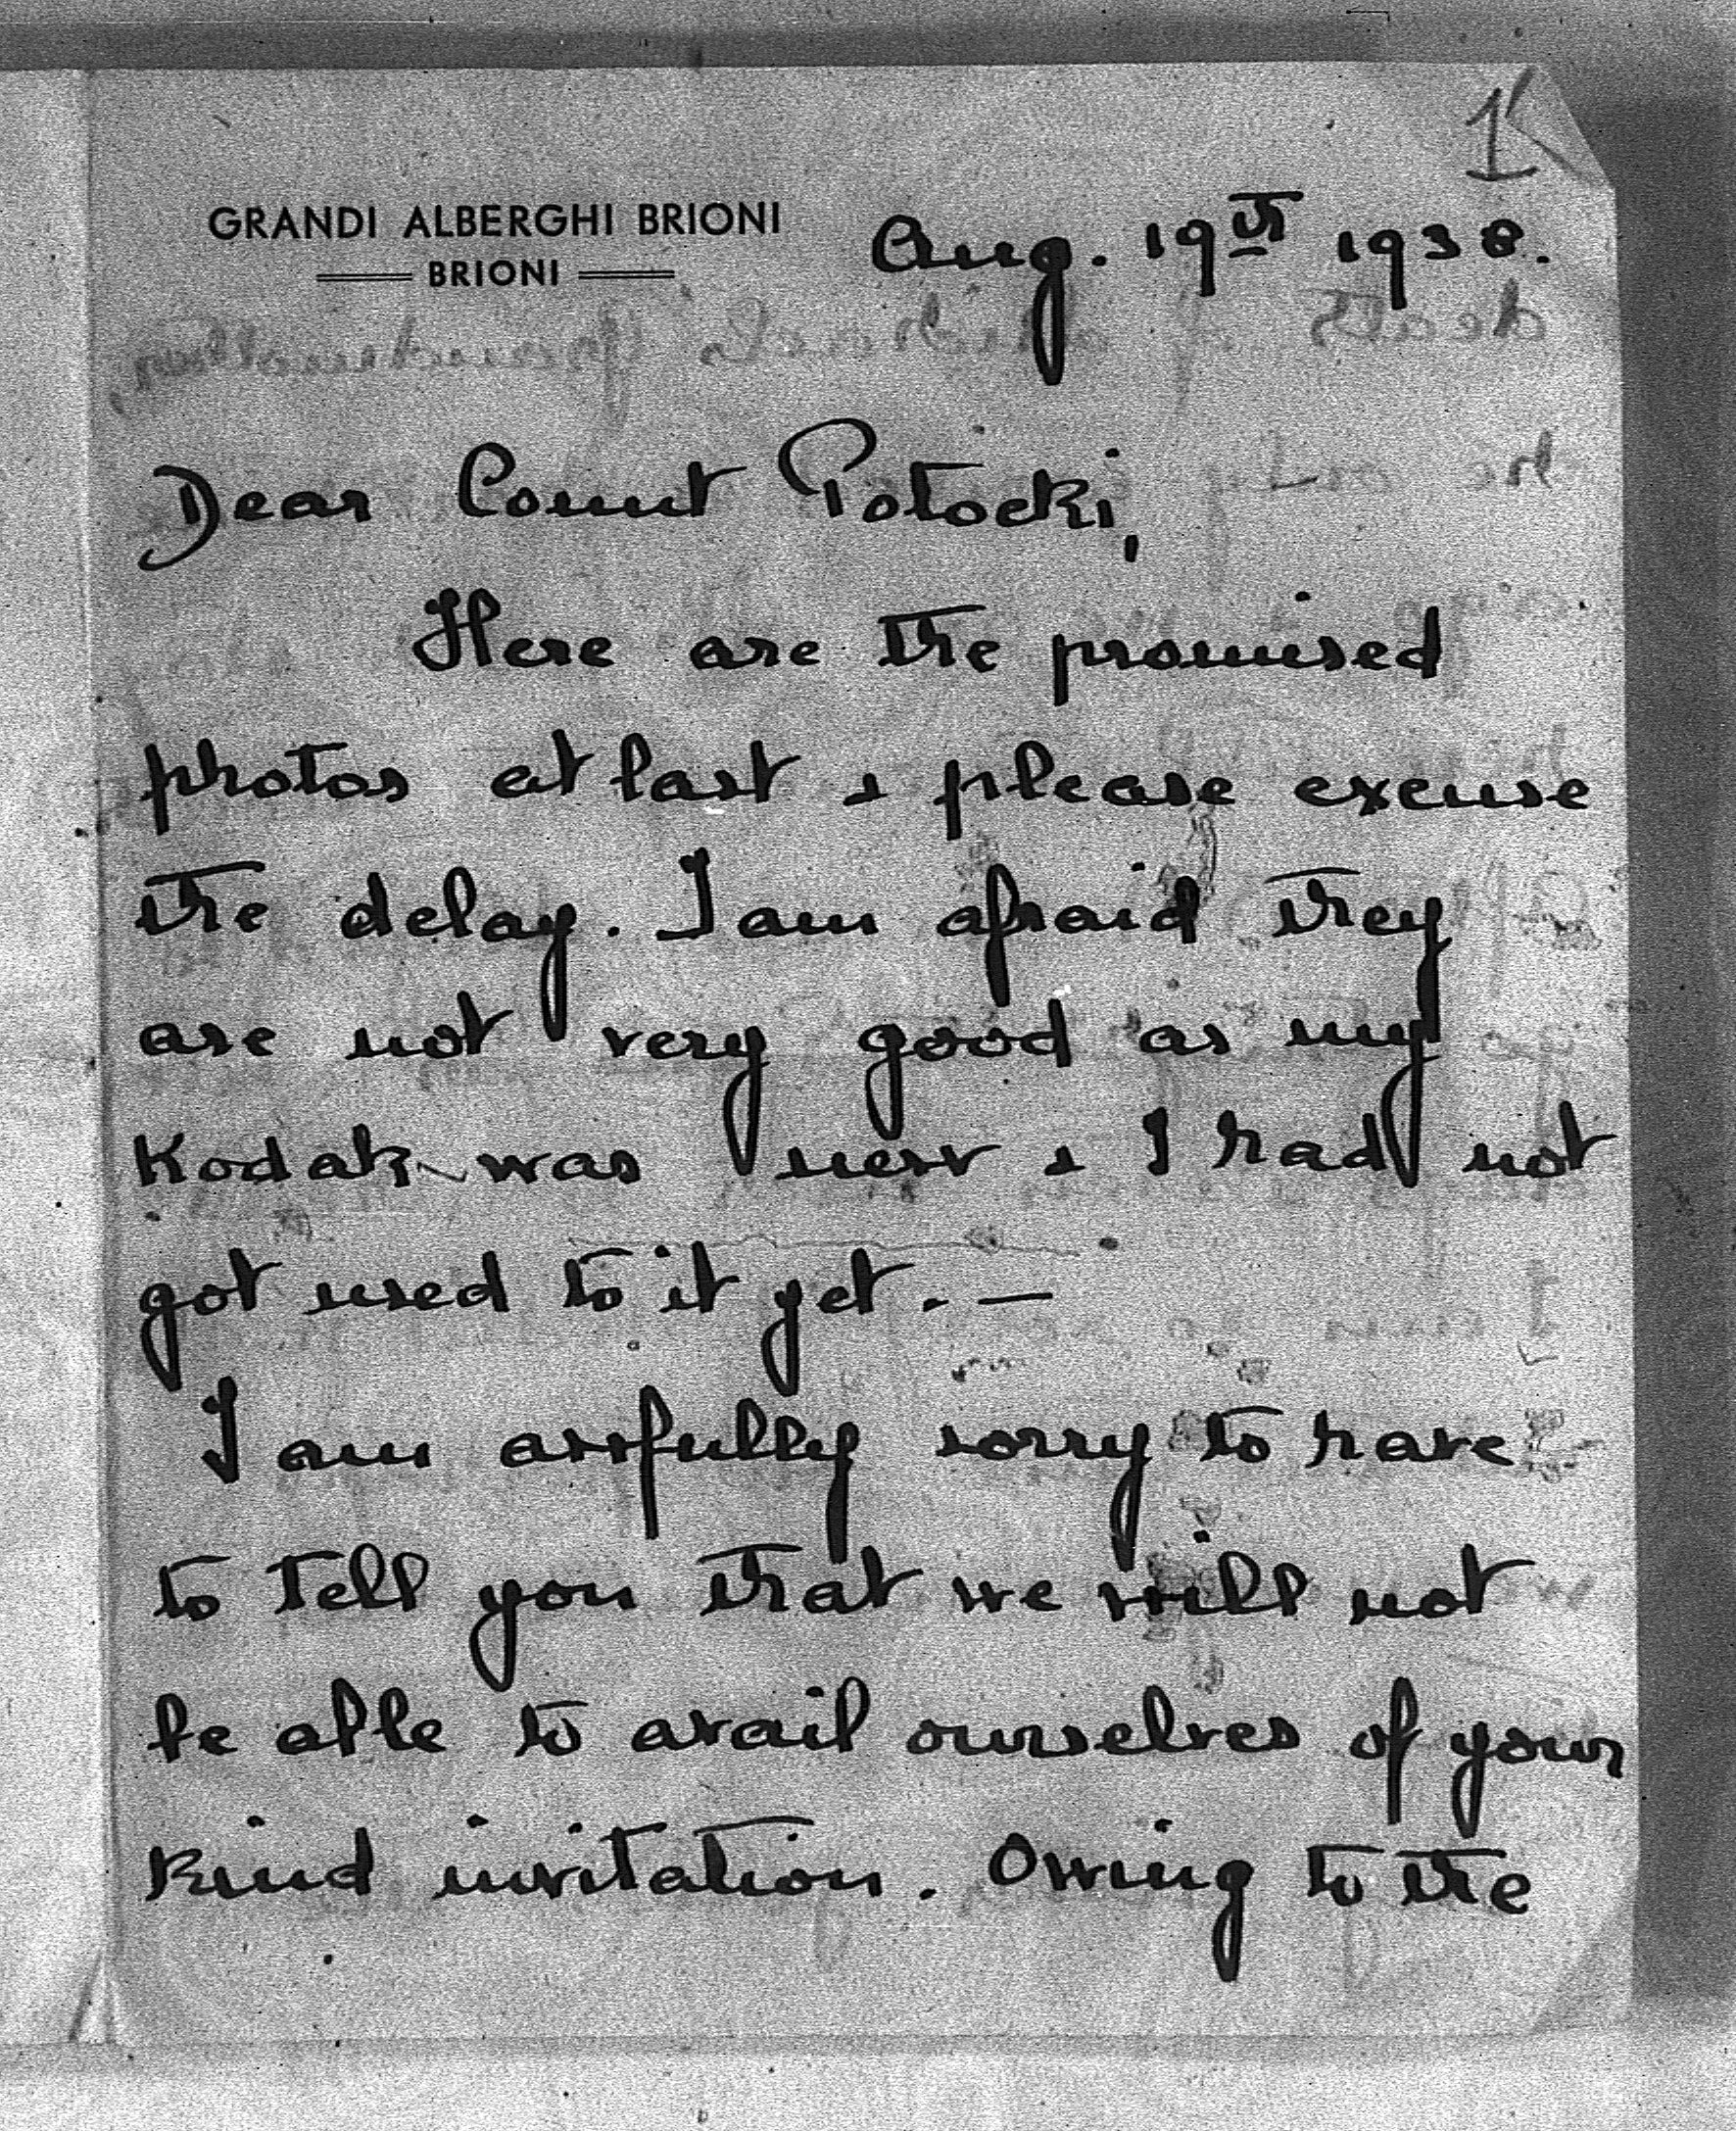 1
GRANDI ALBERGHI BRIONI
BRIONI
Aug. 19th 1938.
Dear Count Potocki,
Here are the promised
photos at last & please excuse
the delay. I am afraid they
are not very good as my
Kodak was new & I had not
got used to it yet. —
I am awfully sorry to have
to tell you that we will not
be able to avail ourselves of your
kind invitation. Owing to the